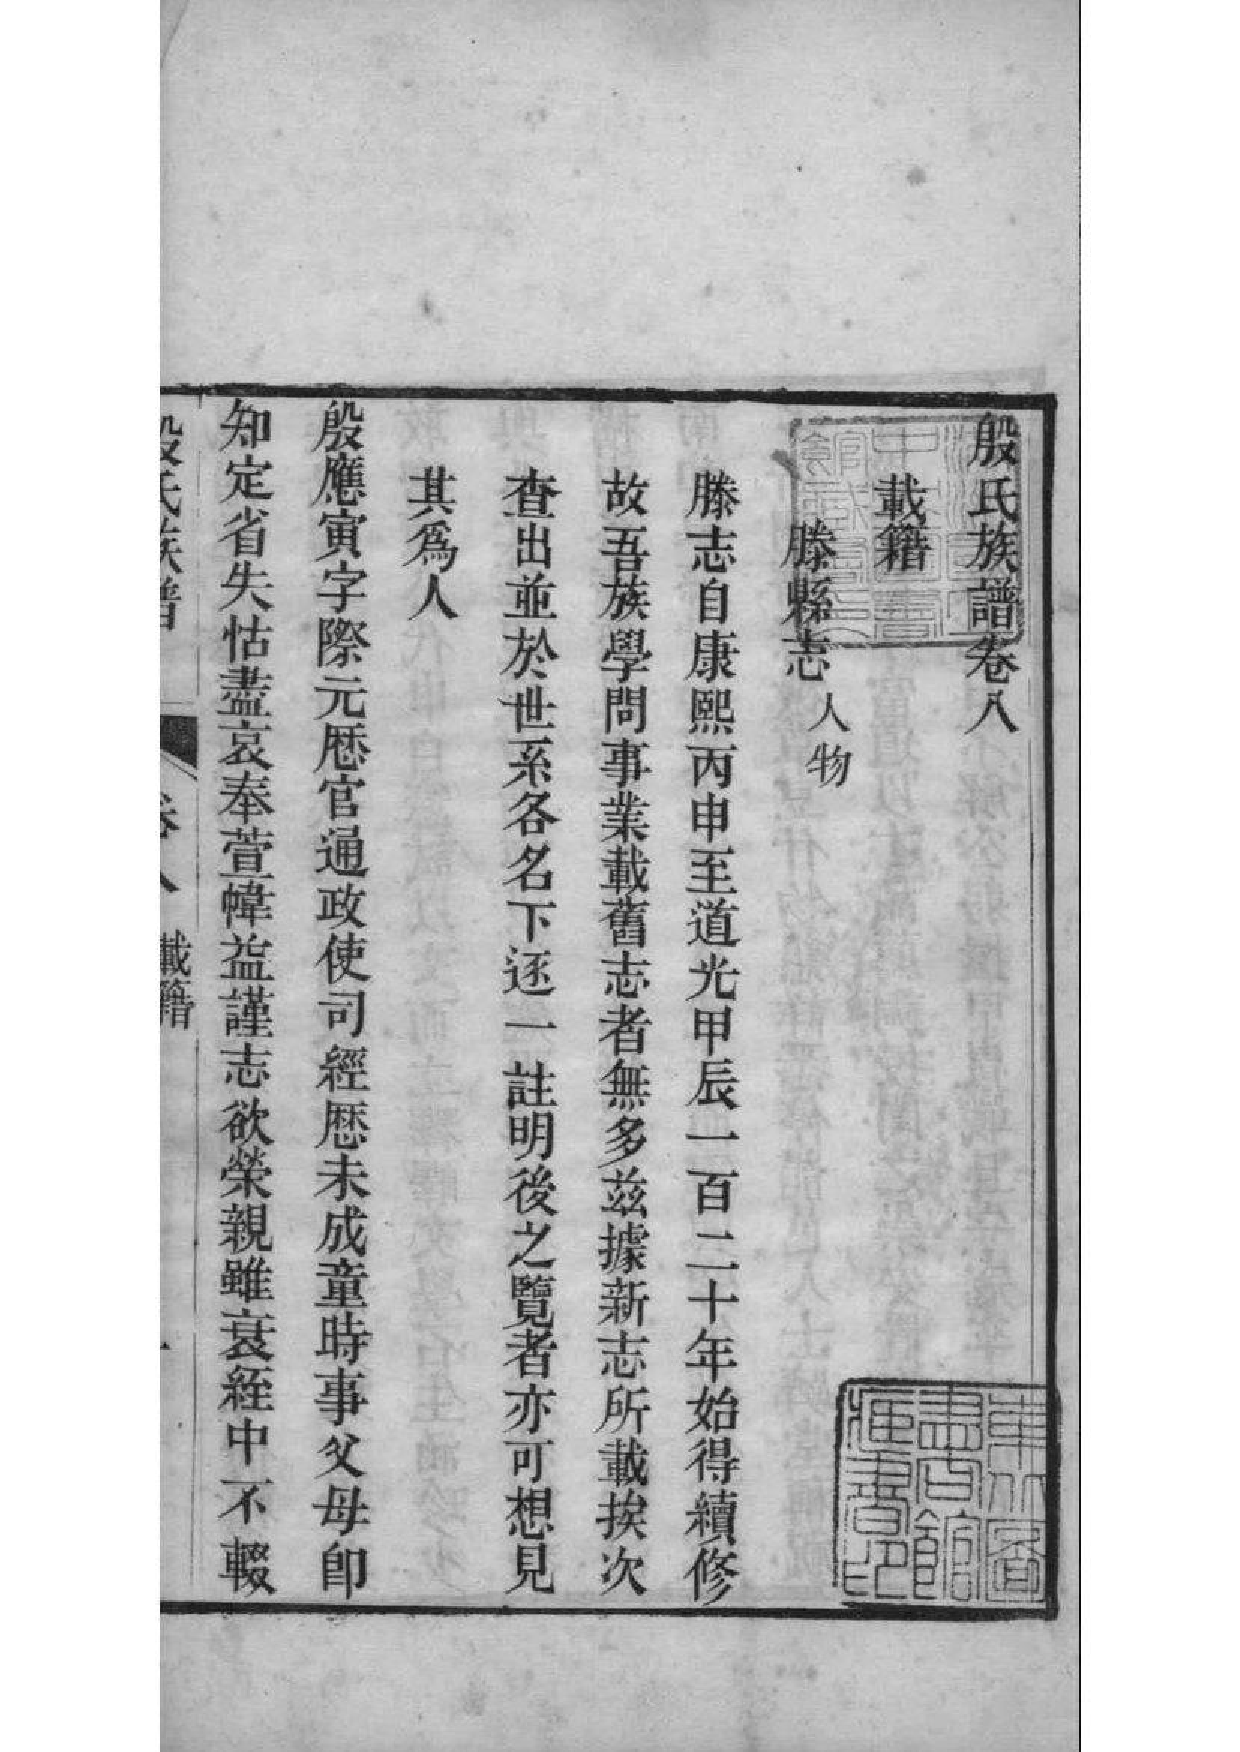 殷氏族譜卷八
載籍
滕縣志 人物
滕志自康熙丙申至道光甲辰一百二十年始得續修
故吾族學問事業載舊志者無多茲據新志所載挨次
查出並於世系各名下逐一註明後之覽者亦可想見
其爲人
殷應寅字際元歴官通政使司經歴未成童時事父母卽
知定省失怙盡哀奉萱幃益謹志欲榮親雖衰絰中不輟
殷氏族譜
卷八 載籍 一